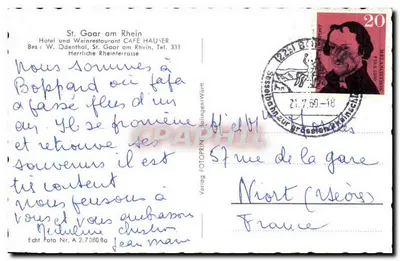 St. Goar am Rhein
Hotel und Weinrestaurant CAFE HAUSER
Bes.: W. Odenthal, St. Goar am Rhein, Tel. 333
Herrliche Rheinterrasse
Nous sommes à
Boppard où fafa
a passé plus d'un
an. Il se promène
et retrouve ses
souvenirs il est
très content
nous pensons à
vous et vous embrassons
Christian
Jean Marie
Echt Foto Nr. A 2.7080 Ba
Verlag FOTOPREN
20
21.7.60-18
57 rue de la gare
Niort (Sèvres)
France